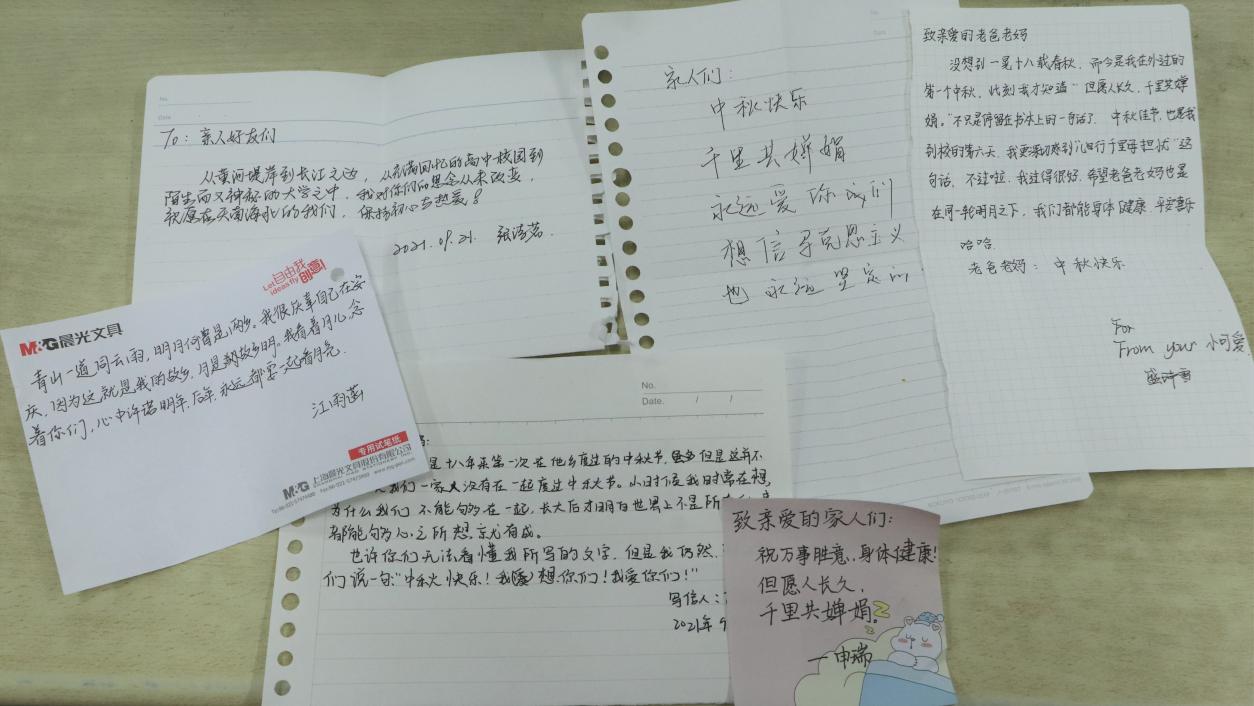 No.
Date
To：亲人好友们
从黄河堤岸到长江之边，从充满回忆的高中校园到
陌生而又神秘的大学之中，我对你们的思念从未改变，
祝愿在天南海北的我们，保持初心与热爱！
2021.09.21.
家人们：
中秋快乐
千里共婵娟
永远爱你们
想信马克思主义
也永远坚定的
致亲爱的老爸老妈
没想到一晃十八载春秋，而今是我在外过的
第一个中秋，此刻我才知道“但愿人长久，千里共婵
娟。”不只是停留在书本上的一句话了．中秋佳节，也是我
到校的第六天，我更深切疼到“儿行千里母担忧”这
句话，不过啦，我过得很好，希望老爸老妈也是
在同一轮明月之下，我们都能身体健康，平安喜乐
哈哈
老爸老妈：中秋快乐
For
From your 小可爱
让自由我创意！
Let ideas fly
M&G晨光文具
青山一道同云雨，明月何曾是两乡。我很庆幸自己在安
庆，因为这就是我的故乡，月是朝故乡明。我看着月儿，念
着你们，心中许诺明年、后年、永远都要一起看月亮．
江雨菡
专用试笔纸
M&G 上海晨光文具股份有限公司
No.
Date. / /
是十八年来第一次在他乡度过的中秋节，虽然但是这并不
我们一家人没有在一起度过中秋节。小时候我时常在想，
为什么我们不能够在一起，长大后才明白世界上不是所有
都能句够心之所想，京尤有成。
也许你们无法看懂我所写的文字，但是我仍然
们说一句：“中秋快乐！我想你们！我爱你们！”
写信人：
2021年9
致亲爱的家人们：
祝万事胜意、身体健康！
但愿人长久，
千里共婵娟。
—申瑞